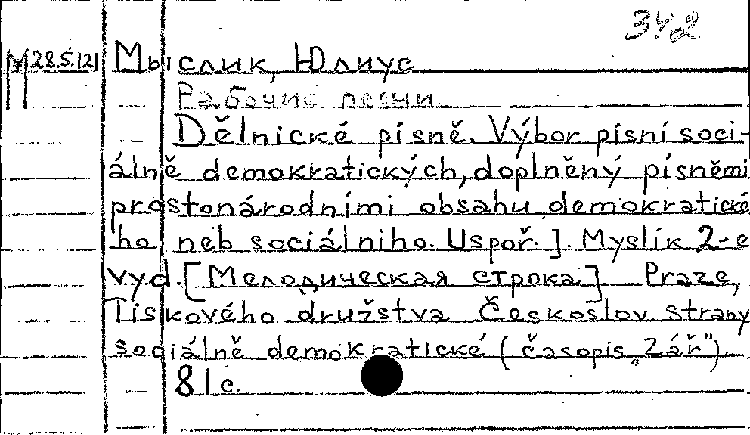 342
М 28.5.121 Мыслик, Юлиус
Рабочие песни
Dělnické písně. Výbor písní soci-
álně demokratických, doplněný písněmi
prostonárodními obsahu demokratické
ho neb sociálního. Uspoř. J. Myslík 2-e
vyd. [Мелодическая строка.] Praze,
Tiskového družstva Českoslov strany
sociálně demokratické (časopis „Zář")
81 с.